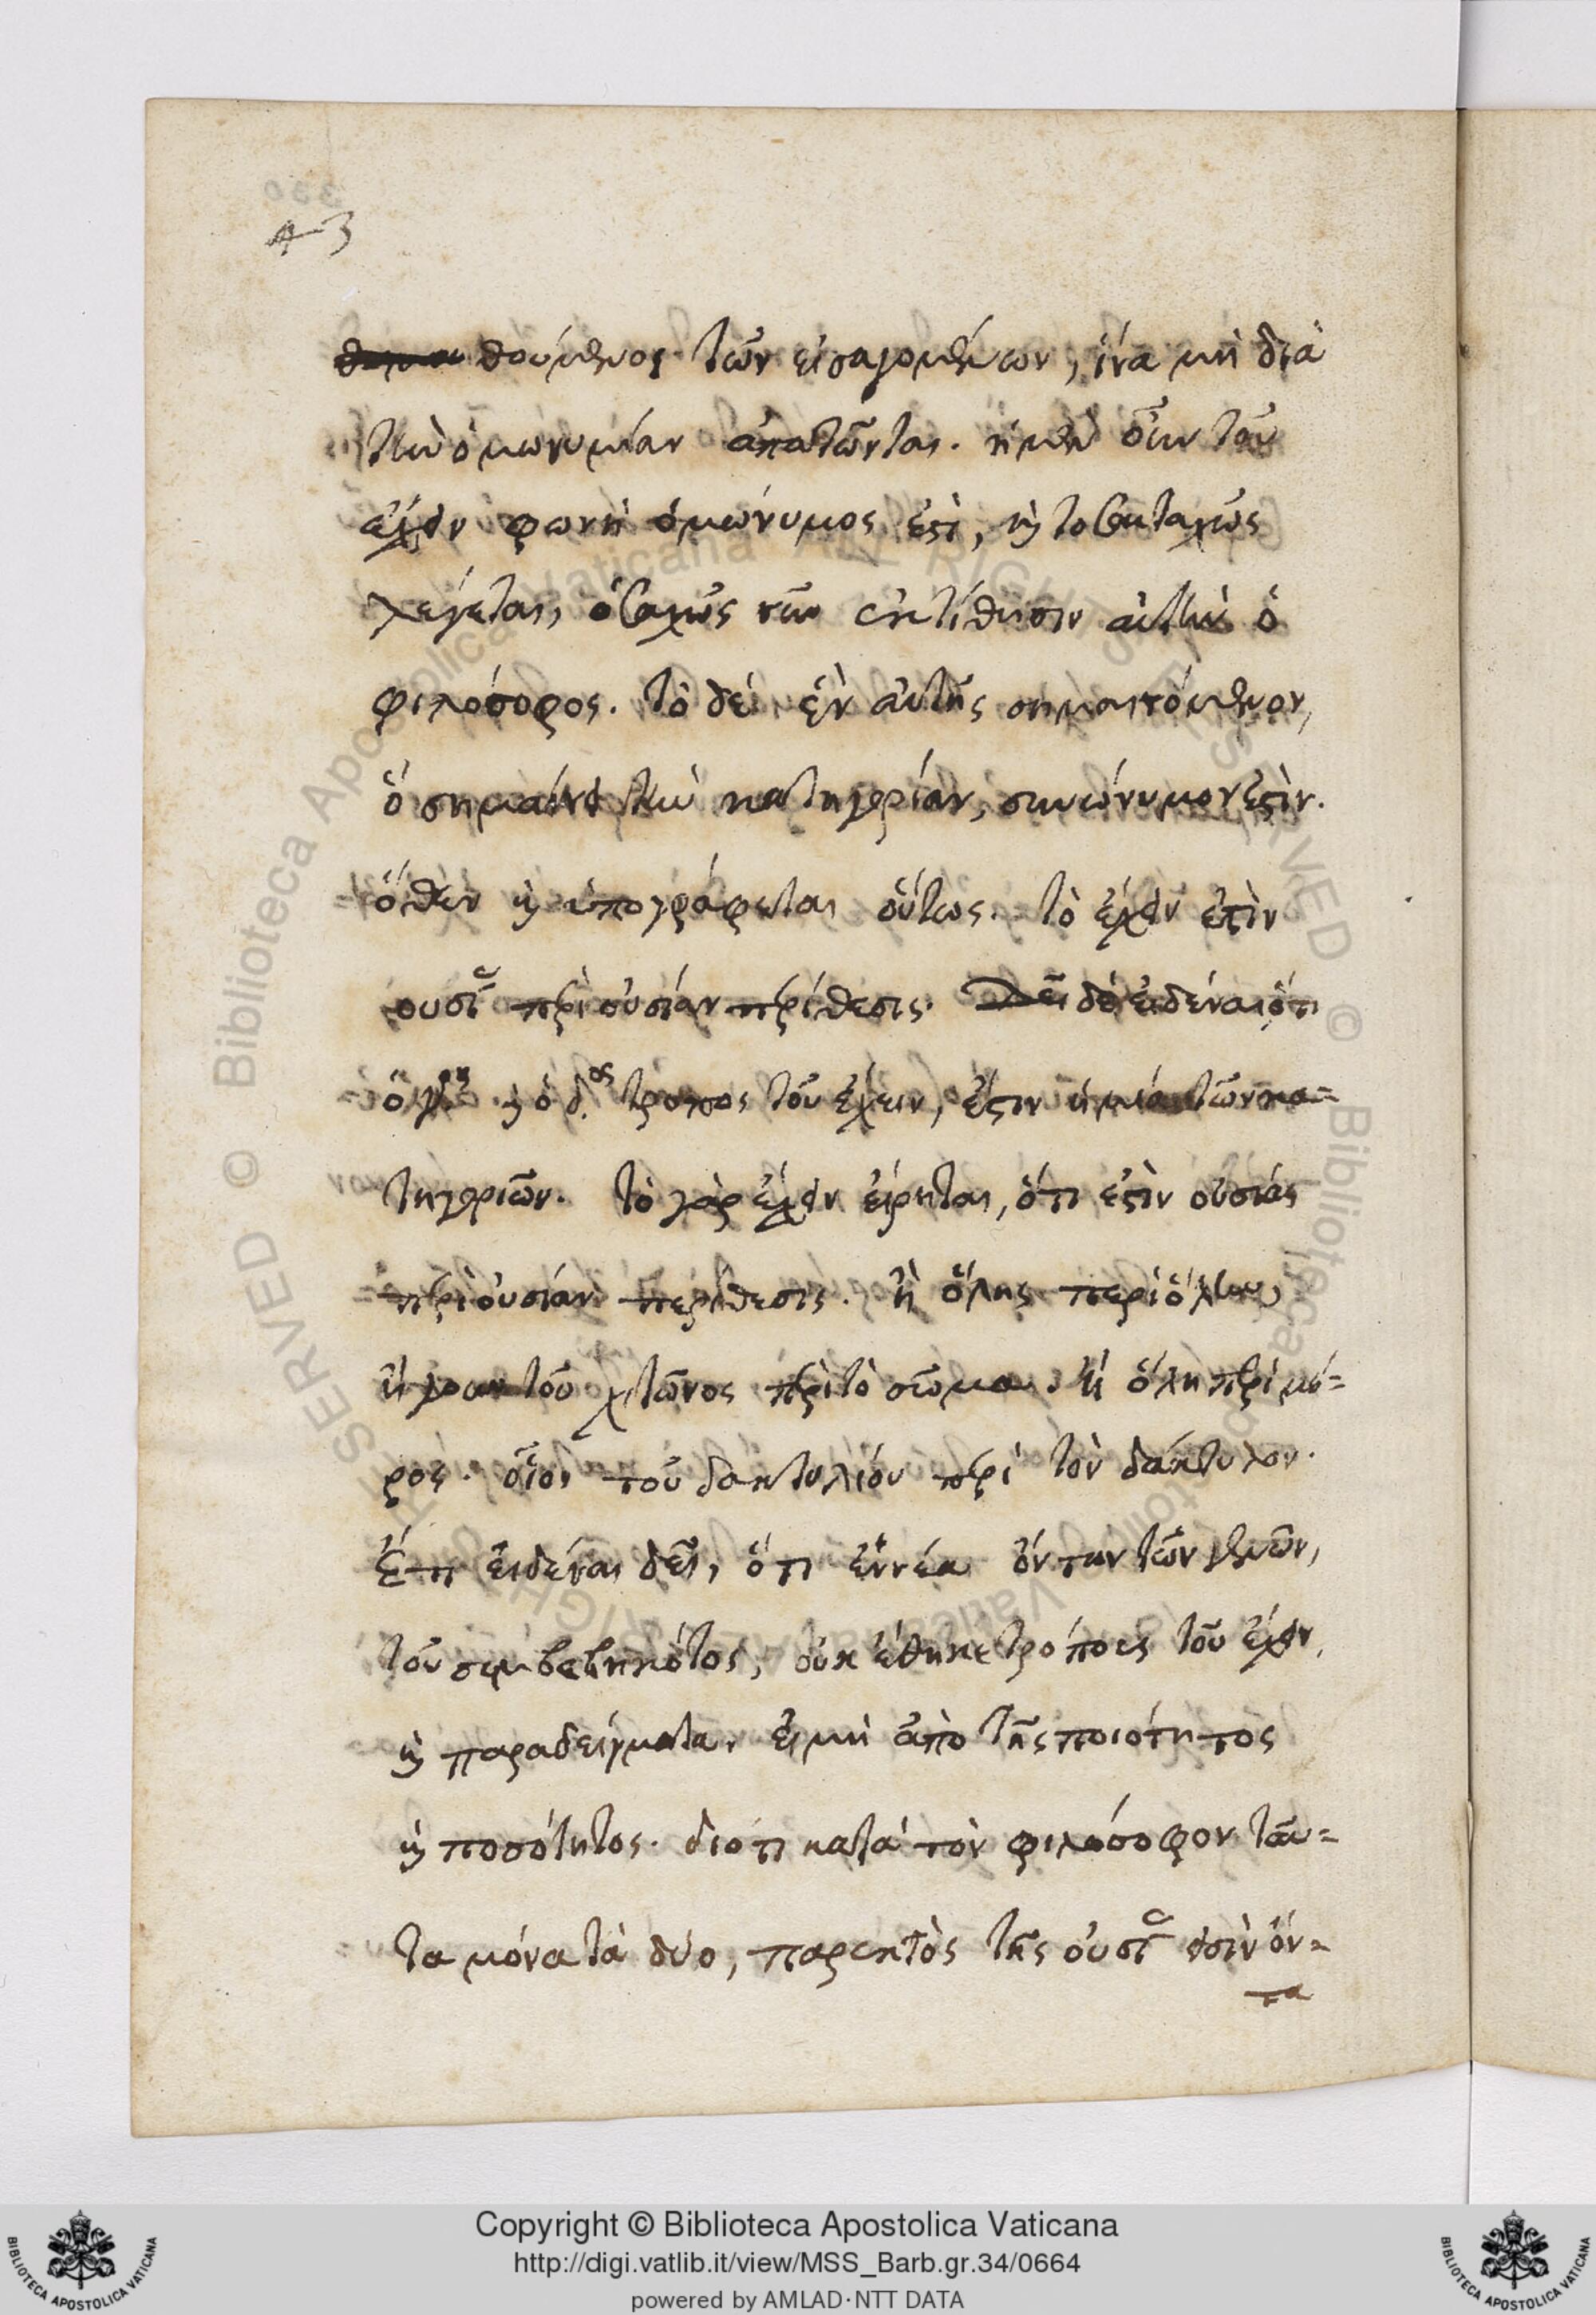 330
43
θούμενος τῶν εἰσαγομένων, ἵνα μὴ διὰ
τὴν ὁμωνυμίαν ἀπατῶνται. ἡ μὲν οὖν τοῦ
ἔχειν φωνὴ ὁμώνυμος ἐστὶ, καὶ τοσαυταχῶς
λέγεται, ὁσαχῶς νῦν ἐκτίθησιν αὐτὴν ὁ
φιλόσοφος. τὸ δέ ἓν αὐτῆς σημαινόμενον,
ὃ σημαίνει τὴν κατηγορίαν, συνώνυμον ἐστὶν.
ὅθεν καὶ ὑπογράφεται οὕτως. τὸ ἔχειν ἐστὶν
οὐσίας περὶ οὐσίαν περίθεσις. Δεῖ δὲ εἰδέναι ὅτι
ὁ γ. καὶ ὁ δ.ος τρόπος τοῦ ἔχειν, ἔστιν ἡ μία τῶν κα=
τηγοριῶν. τὸ γὰρ ἔχειν εἴρηται, ὅτι ἐστὶν οὐσίας
περὶ οὐσίαν περίθεσις. ἢ ὅλης περὶ ὅλην,
ἤγουν τοῦ χιτῶνος περὶ τὸ σῶμα. ἢ ὅλη περὶ μέ=
ρος. οἷον τοῦ δακτυλίου περὶ τὸν δάκτυλον.
Ἔτι εἰδέναι δεῖ, ὅτι ἐννέα ὄντων τῶν γενῶν,
τοῦ συμβεβηκότος, οὐκ ἔθηκε τρόπους τοῦ ἔχειν,
καὶ παραδείγματα. εἰ μὴ ἀπὸ τῆς ποιότητος
καὶ ποσότητος. διότι κατὰ τὸν φιλόσοφον ταῦ=
τα μόνα τὰ δύο, παρεκτὸς τῆς οὐσίας εἰσὶν ὄν=
τα
© Biblioteca Apostolica Vaticana ALL RIGHTS RESERVED
Copyright © Biblioteca Apostolica Vaticana
http://digi.vatlib.it/view/MSS_Barb.gr.34/0664
powered by AMLAD·NTT DATA
BIBLIOTECA APOSTOLICA VATICANA
BIBLIOTECA APOSTOLICA VATICANA